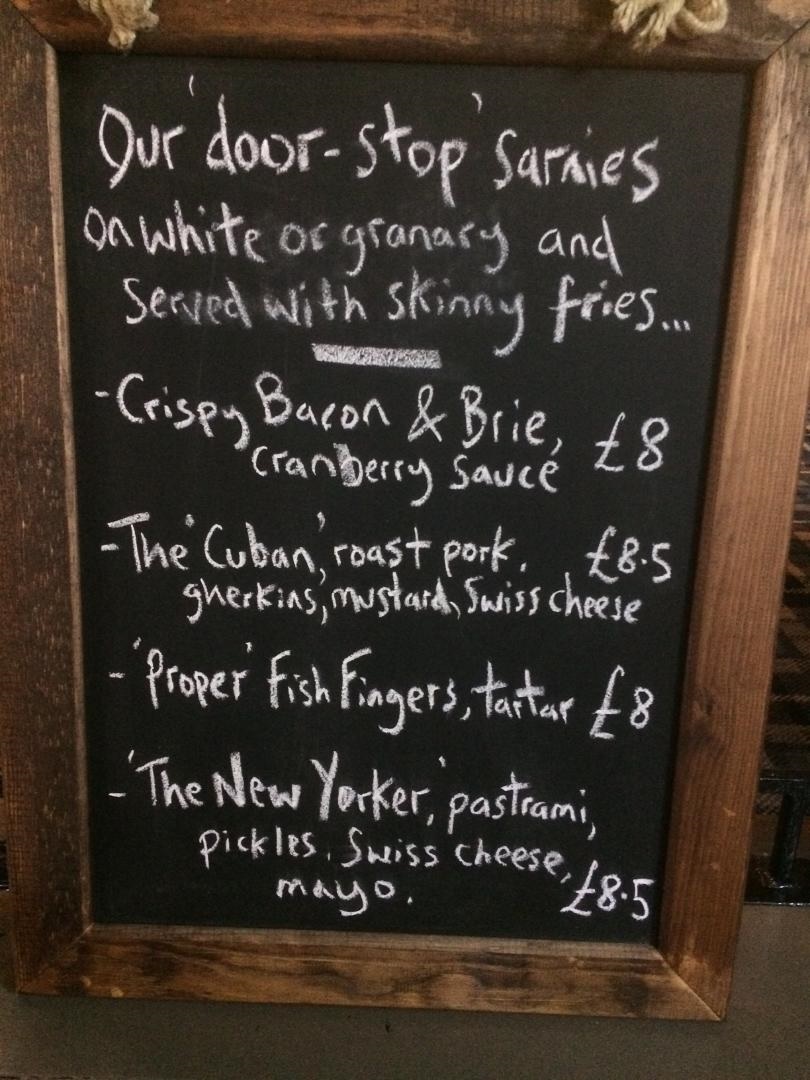 Our 'door-stop' sarnies
on white or granary and
served with skinny fries...
-Crispy Bacon & Brie, £8
cranberry sauce
-The 'Cuban', roast pork. £8.5
gherkins, mustard, Swiss cheese
-'Proper' Fish Fingers, tartar £8
-'The New Yorker,' pastrami,
pickles. Swiss cheese,
mayo. £8.5